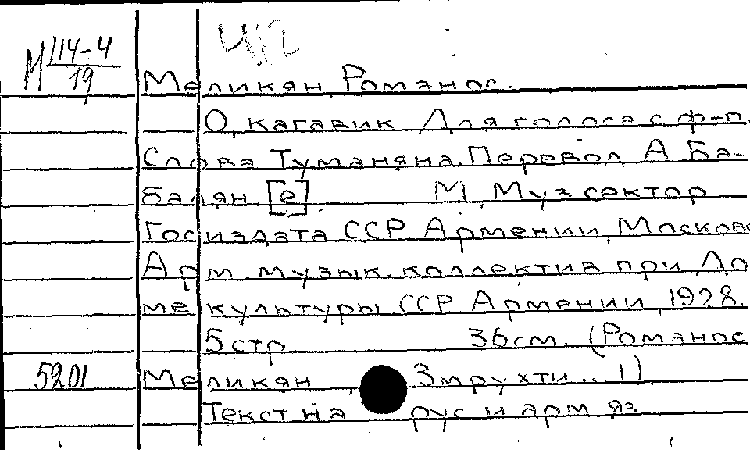 М 114-4/19
Меликян, Романос.
О, кагавик. Для голоса с ф-п.
Слова Туманяна. Перевод А. Ба-
балян [е]. М., Музсектор
Госиздата ССР Армении, Москов
Арм. музык. коллектив при До-
ме культуры ССР Армении, 1928.
5 стр. 36 см. (Романос
5201 Меликян, Змрухти... 1)
Текст на рус. и арм. яз.